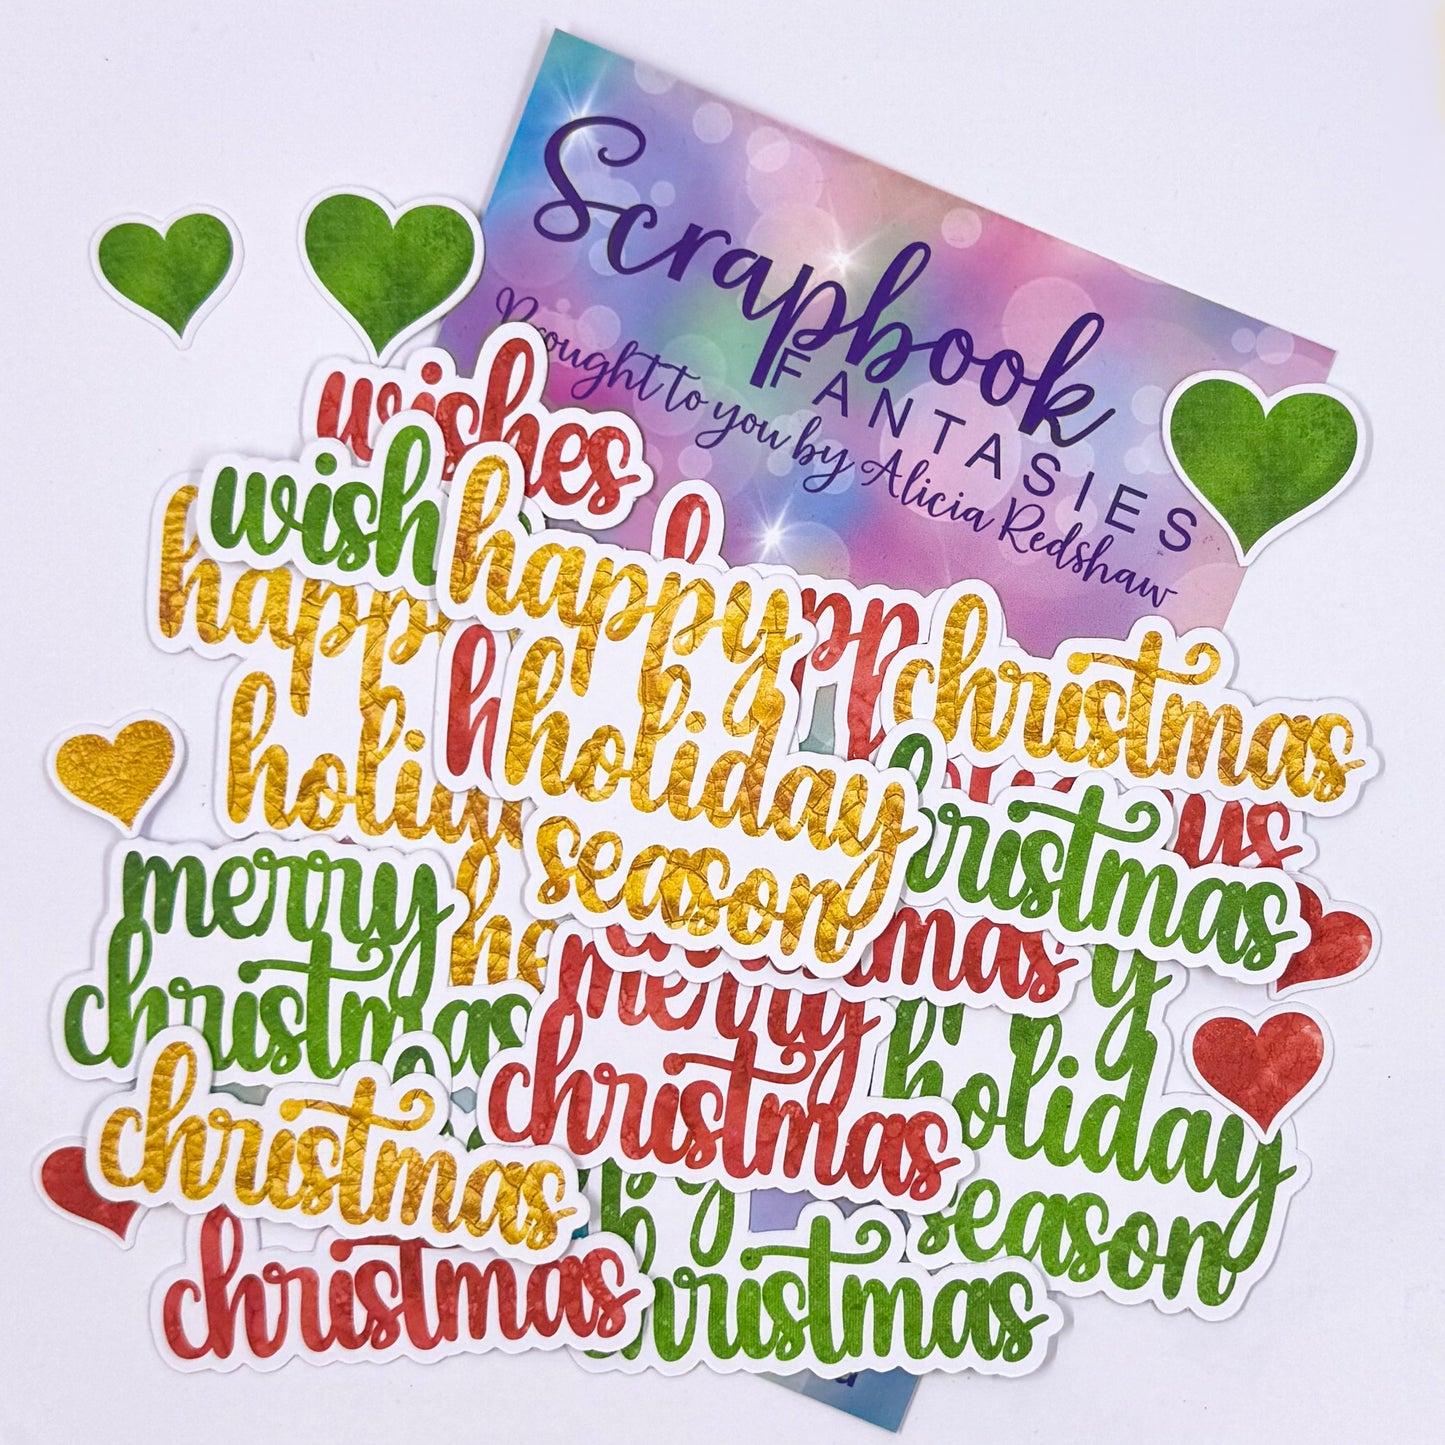 Scrapbook
FANTASIES
Brought to you by Alicia Redshaw
wishes
wish
happy
holiday
season
happ
holi
christmas
christmas
us
merry
christmas
merry
christmas
mas
y
holiday
season
christmas
christmas
christmas